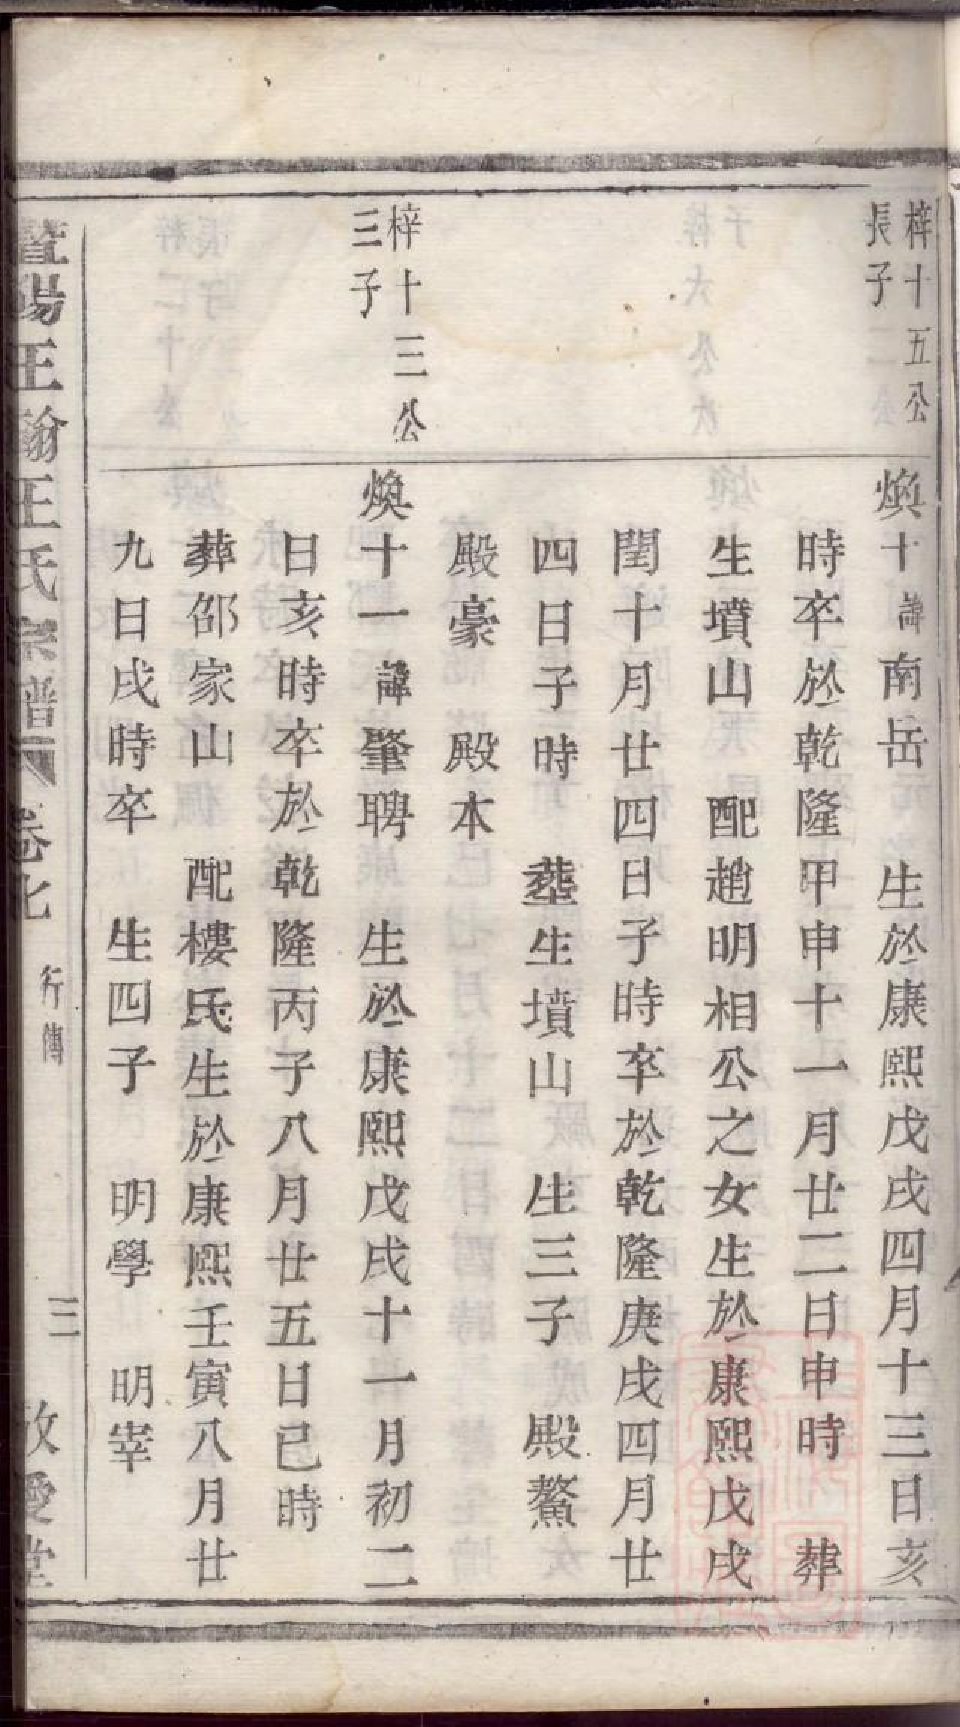 梓十五公
長子
煥十諱南岳 生於康熙戊戌四月十三日亥
時卒於乾隆甲申十一月廿二日申時 葬
生墳山 配趙明相公之女生於康熙戊戌
閏十月廿四日子時卒於乾隆庚戌四月廿
四日子時 葬生墳山 生三子 殿鰲
殿豪 殿本
梓十三公
三子
煥十一諱肇聘 生於康熙戊戌十一月初二
日亥時卒於乾隆丙子八月廿五日已時
葬邵家山 配樓氏生於康熙壬寅八月廿
九日戌時卒 生四子 明學 明宰
暨陽王翰王氏宗譜 卷七 行傳 三 敦愛堂